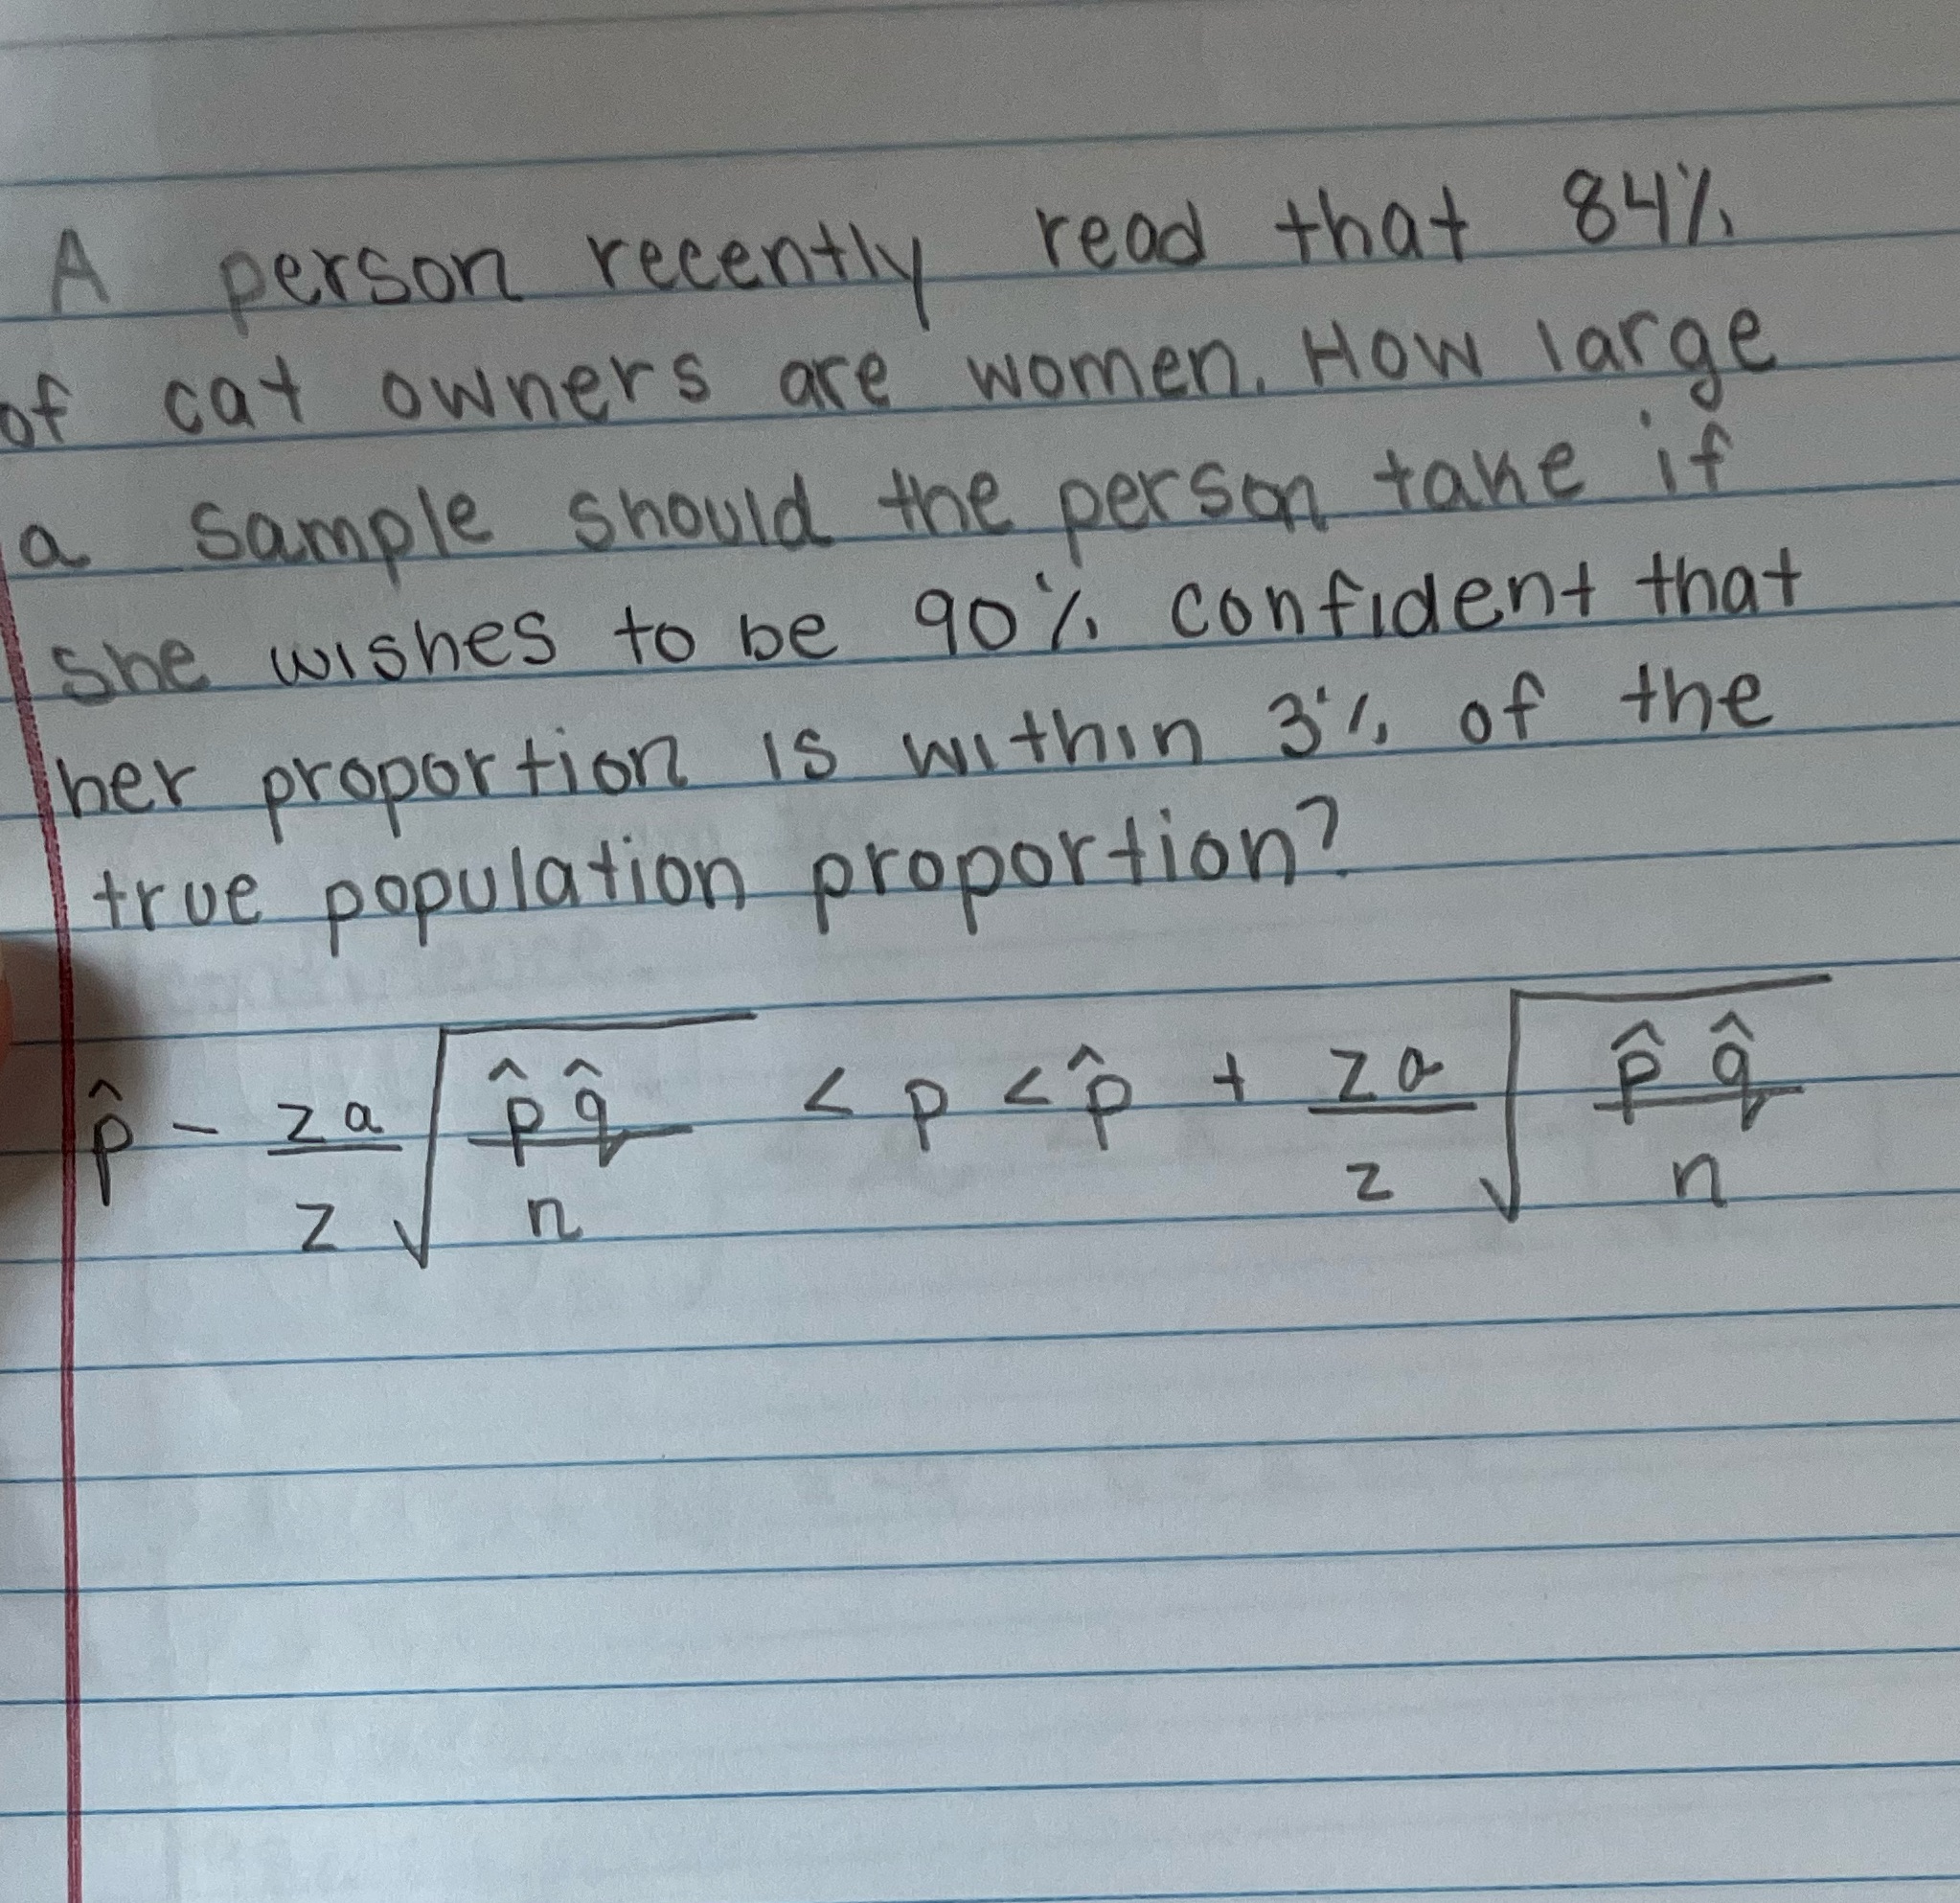 A person recently read that 84%
of cat owners are women. How large
a sample should the person take if
she wishes to be 90% confident that
her proportion is within 3% of the
true population proportion?
p̂ - za/z √(p̂ q̂/n) < p < p̂ + za/z √(p̂ q̂/n)